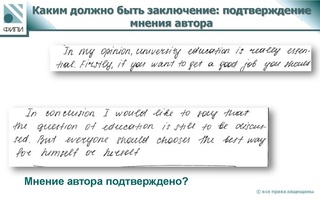 ФИПИ
Каким должно быть заключение: подтверждение
мнения автора
In my opinion, university education is really essen-
tial. Firstly, if you want to get a good job you should
In conclusion I would like to say that
the question of education is still to be discus-
sed. But everyone should chooses the best way
for himself or herself
Мнение автора подтверждено?
© все права защищены